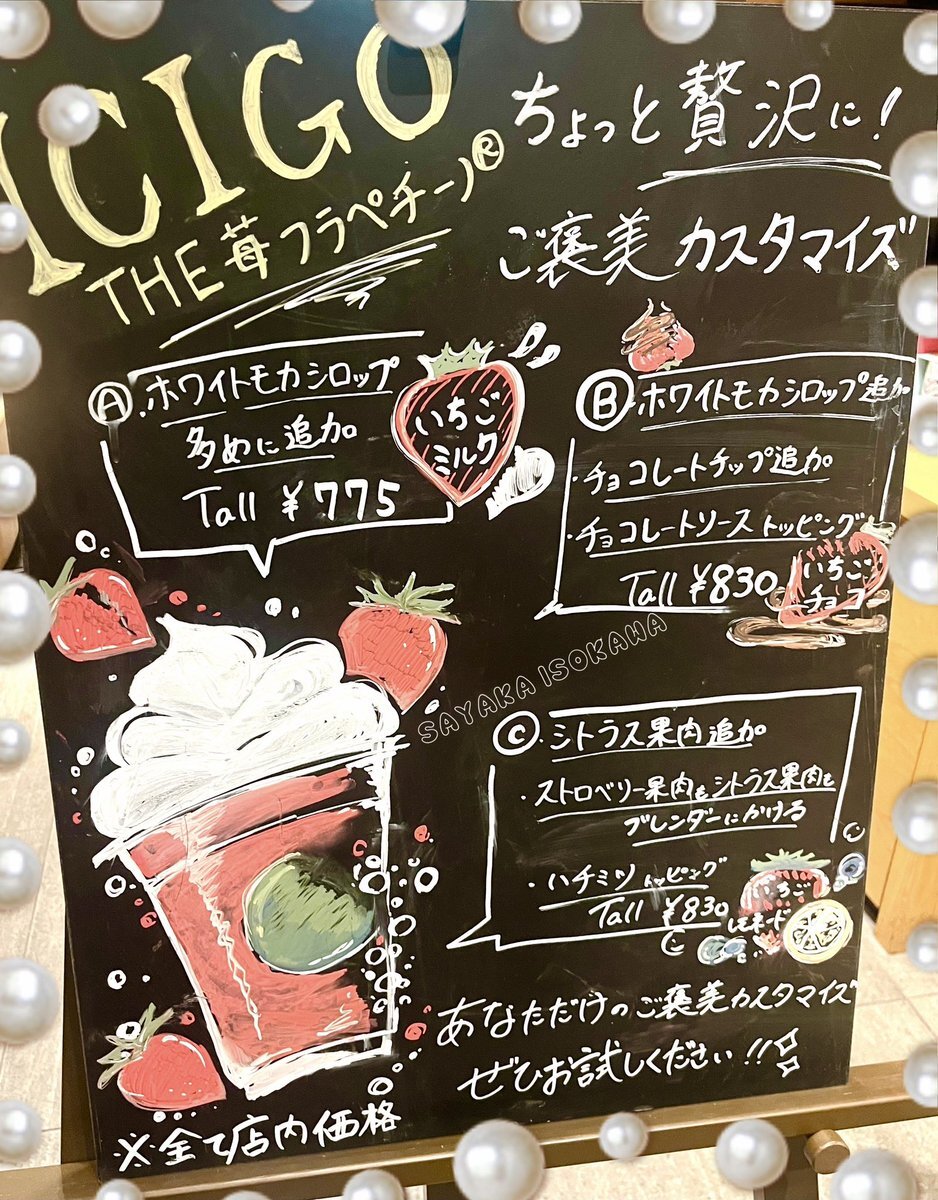 ICIGO
THE苺フラペチーノ®
ちょっと贅沢に!
ご褒美カスタマイズ
Ⓐ・ホワイトモカシロップ
多めに追加
Tall ¥775
いちご
ミルク
Ⓑ・ホワイトモカシロップ追加
・チョコレートチップ追加
・チョコレートソーストッピング
Tall ¥830
いちご
チョコ
SAYAKA ISOKAWA
Ⓒ・シトラス果肉追加
・ストロベリー果肉もシトラス果肉も
ブレンダーにかける
・ハチミツトッピング
Tall ¥830
いちご
レモネード
あなただけのご褒美カスタマイズ
ぜひお試しください!!
※全て店内価格